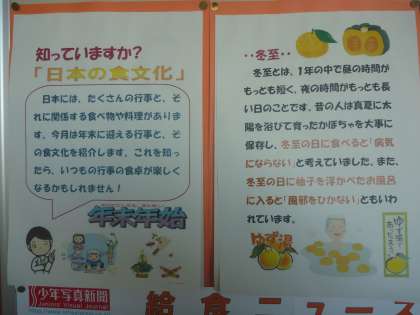 知っていますか?
「日本の食文化」
日本には、たくさんの行事と、そ
れに関係する食べ物や料理がありま
す。今月は年末に迎える行事と、そ
の食文化を紹介します。これを知っ
たら、いつもの行事の食卓が楽しく
なるかもしれません!
年末年始
少年写真新聞
Juniors' Visual Journal
・・冬至・・
冬至とは、1年の中で昼の時間が
もっとも短く、夜の時間がもっとも長
い日のことです。昔の人は真夏に太
陽を浴びて育ったかぼちゃを大事に
保存し、冬至の日に食べると「病気
にならない」と考えていました。また、
冬至の日に柚子を浮かべたお風呂
に入ると「風邪をひかない」ともいわ
れています。
ゆず湯
ゆず湯で
あったまろう
給食ニュース